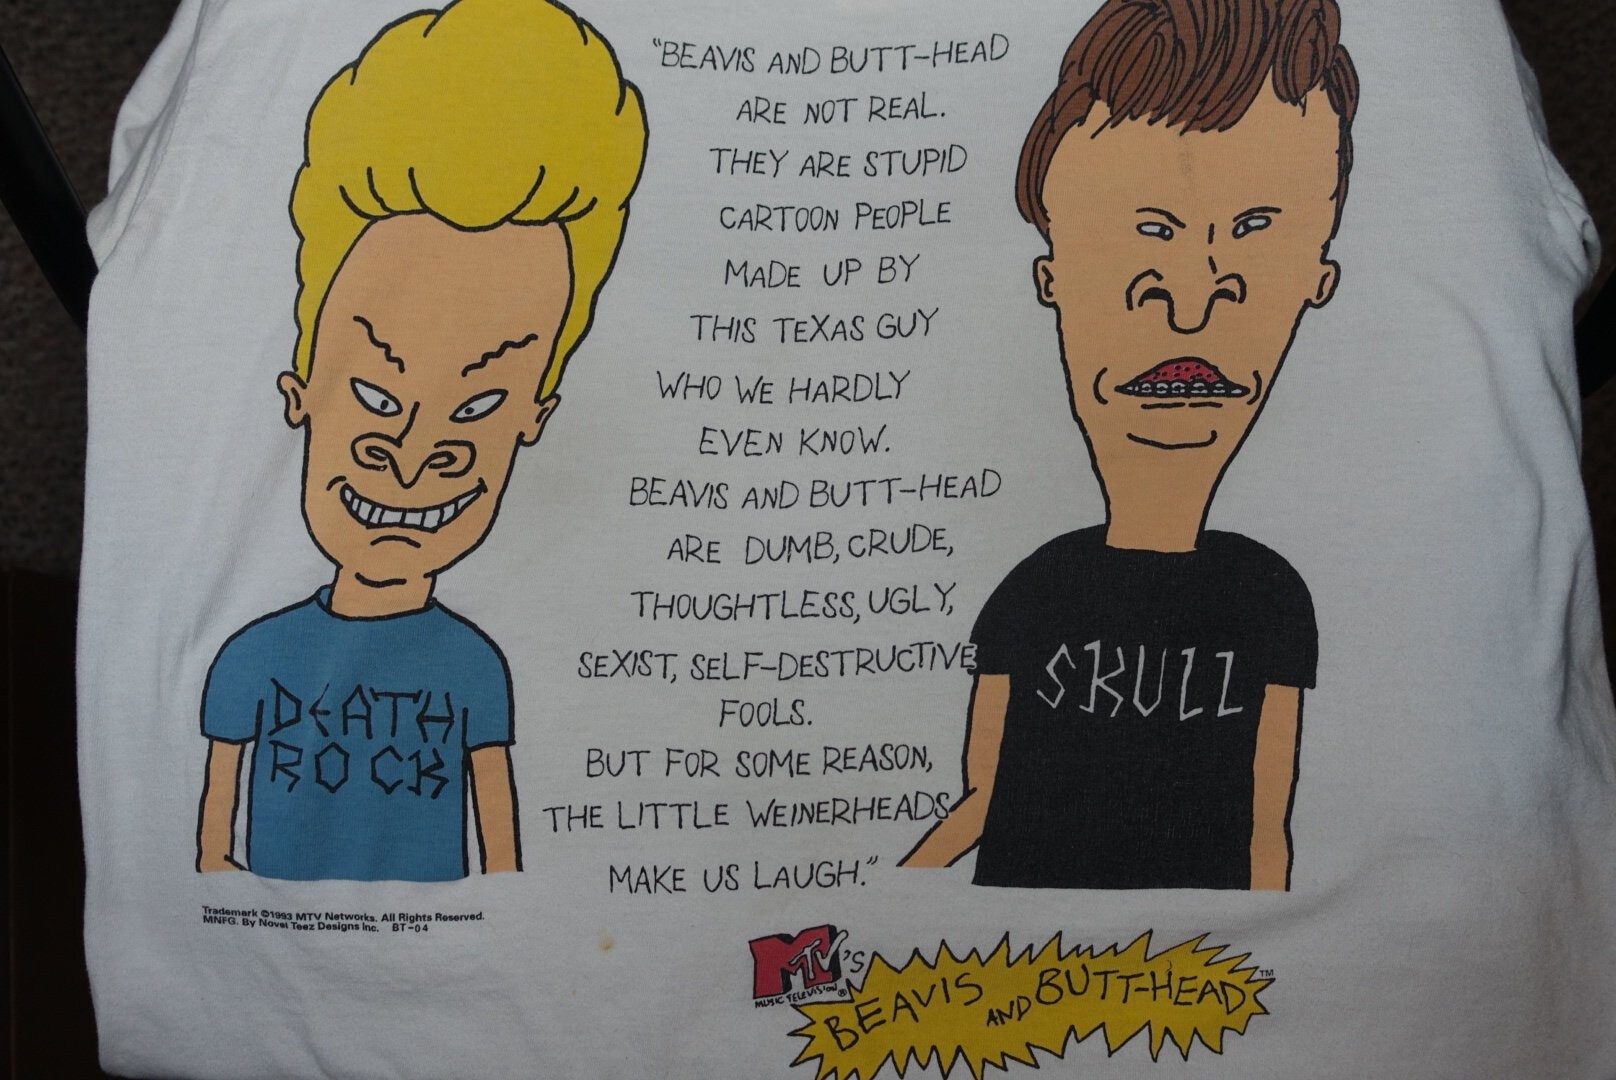 "BEAVIS AND BUTT-HEAD
ARE NOT REAL.
THEY ARE STUPID
CARTOON PEOPLE
MADE UP BY
THIS TEXAS GUY
WHO WE HARDLY
EVEN KNOW.
BEAVIS AND BUTT-HEAD
ARE DUMB, CRUDE,
THOUGHTLESS, UGLY,
SEXIST, SELF-DESTRUCTIVE
FOOLS.
BUT FOR SOME REASON,
THE LITTLE WEINERHEADS
MAKE US LAUGH."
DEATH
ROCK
SKULL
Trademark ©1993 MTV Networks. All Rights Reserved.
MNFG. By Novel Teez Designs Inc. BT-04
MTV'S
MUSIC TELEVISION ®
BEAVIS AND BUTT-HEAD TM